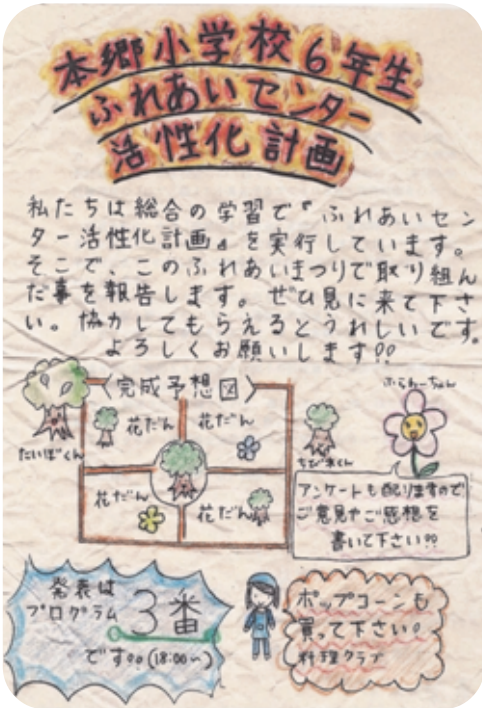 本郷小学校6年生
ふれあいセンター
活性化計画
私たちは総合の学習で『ふれあいセン
ター活性化計画』を実行しています。
そこで、このふれあいまつりで取り組ん
だ事を報告します。ぜひ見に来て下さ
い。協力してもらえるとうれしいです。
よろしくお願いします!!
〈完成予想図〉
ふらわーちゃん
花だん
花だん
たいぼくん
ちび木くん
花だん
花だん
アンケートも配りますので
ご意見やご感想を
書いて下さい!!
発表は
プログラム
3番
です。。(18:00〜)
ポップコーンも
買って下さい!
料理クラブ